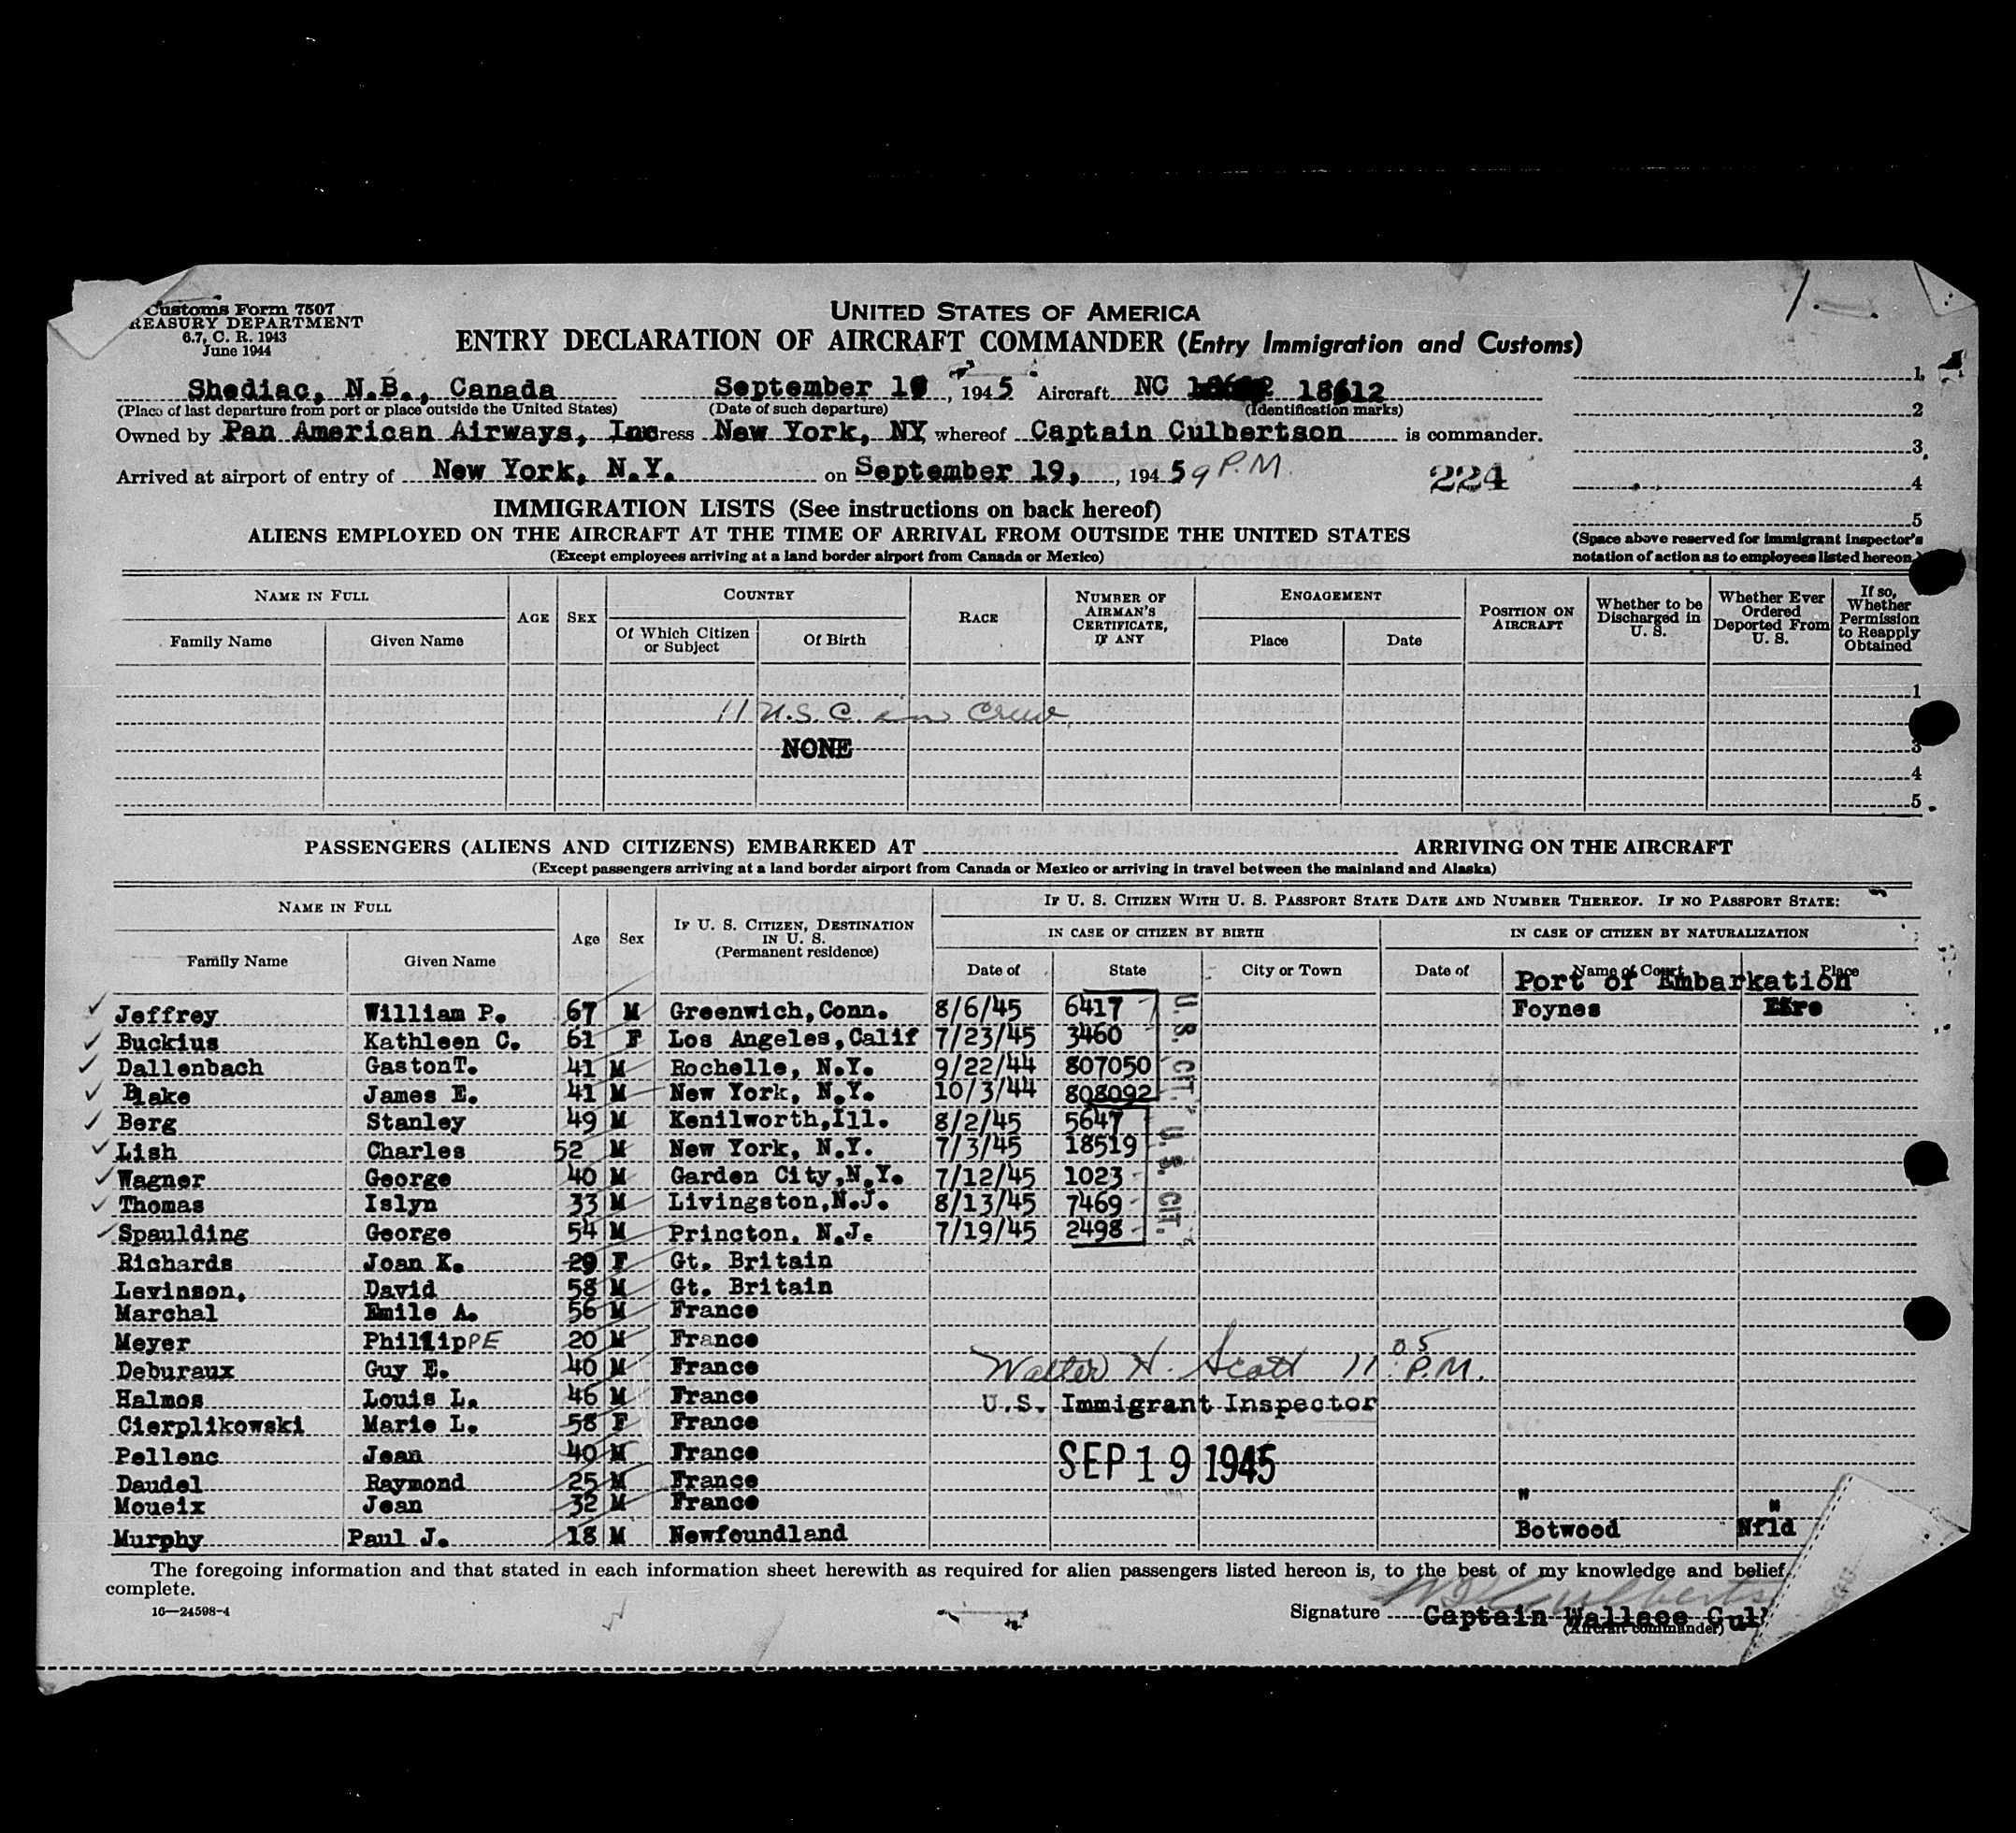 Customs Form 7507
TREASURY DEPARTMENT
6.7, C. R. 1943
June 1944
UNITED STATES OF AMERICA
ENTRY DECLARATION OF AIRCRAFT COMMANDER (Entry Immigration and Customs)
Shediac, N.B., Canada September 19, 1945 Aircraft NC 18612
(Place of last departure from port or place outside the United States) (Date of such departure) (Identification marks)
Owned by Pan American Airways, Inc ress New York, NY whereof Captain Culbertson is commander.
Arrived at airport of entry of New York, N.Y. on September 19, 1945 9 P.M. 224
1
2
3
4
5
(Space above reserved for immigrant inspector's notation of action as to employees listed hereon.)
IMMIGRATION LISTS (See instructions on back hereof)
ALIENS EMPLOYED ON THE AIRCRAFT AT THE TIME OF ARRIVAL FROM OUTSIDE THE UNITED STATES
(Except employees arriving at a land border airport from Canada or Mexico)
NAME IN FULL AGE SEX COUNTRY RACE NUMBER OF AIRMAN'S CERTIFICATE, IF ANY ENGAGEMENT POSITION ON AIRCRAFT Whether to be Discharged in U. S. Whether Ever Ordered Deported From U. S. If so, Whether Permission to Reapply Obtained
Family Name Given Name Of Which Citizen or Subject Of Birth Place Date
1
11 U.S.C. in Crew
NONE 3
4
5
PASSENGERS (ALIENS AND CITIZENS) EMBARKED AT ARRIVING ON THE AIRCRAFT
(Except passengers arriving at a land border airport from Canada or Mexico or arriving in travel between the mainland and Alaska)
NAME IN FULL Age Sex IF U. S. CITIZEN, DESTINATION IN U. S. (Permanent residence) IF U. S. CITIZEN WITH U. S. PASSPORT STATE DATE AND NUMBER THEREOF. IF NO PASSPORT STATE:
IN CASE OF CITIZEN BY BIRTH IN CASE OF CITIZEN BY NATURALIZATION
Family Name Given Name Date of State City or Town Date of Name of Court Place
Port of Embarkation
Jeffrey William P. 67 M Greenwich, Conn. 8/6/45 6417 Foynes Eire
Buckius Kathleen C. 61 F Los Angeles, Calif 7/23/45 3460
Dallenbach GastonT. 41 M Rochelle, N.Y. 9/22/44 807050
Blake James E. 41 M New York, N.Y. 10/3/44 808092
U. S. CIT.
Berg Stanley 49 M Kenilworth,Ill. 8/2/45 5647
Lish Charles 52 M New York, N.Y. 7/3/45 18519
Wagner George 40 M Garden City,N.Y. 7/12/45 1023
Thomas Islyn 33 M Livingston,N.J. 8/13/45 7469
Spaulding George 54 M Princton, N.J. 7/19/45 2498
U. S. CIT.
Richards Joan K. 29 F Gt. Britain
Levinson, David 58 M Gt. Britain
Marchal Emile A. 56 M France
Meyer PhillipPE 20 M France
Deburaux Guy E. 40 M France Walter H. Scott 11:05 P.M.
Halmos Louis L. 46 M France U.S. Immigrant Inspector
Cierplikowski Marie L. 58 F France
Pellenc Jean 40 M France SEP 19 1945
Daudel Raymond 25 M France
Moueix Jean 32 M France " "
Murphy Paul J. 18 M Newfoundland Botwood Nfld
The foregoing information and that stated in each information sheet herewith as required for alien passengers listed hereon is, to the best of my knowledge and belief,
complete.
16—24598-4
Signature Captain Wallace Cul
(Aircraft commander)